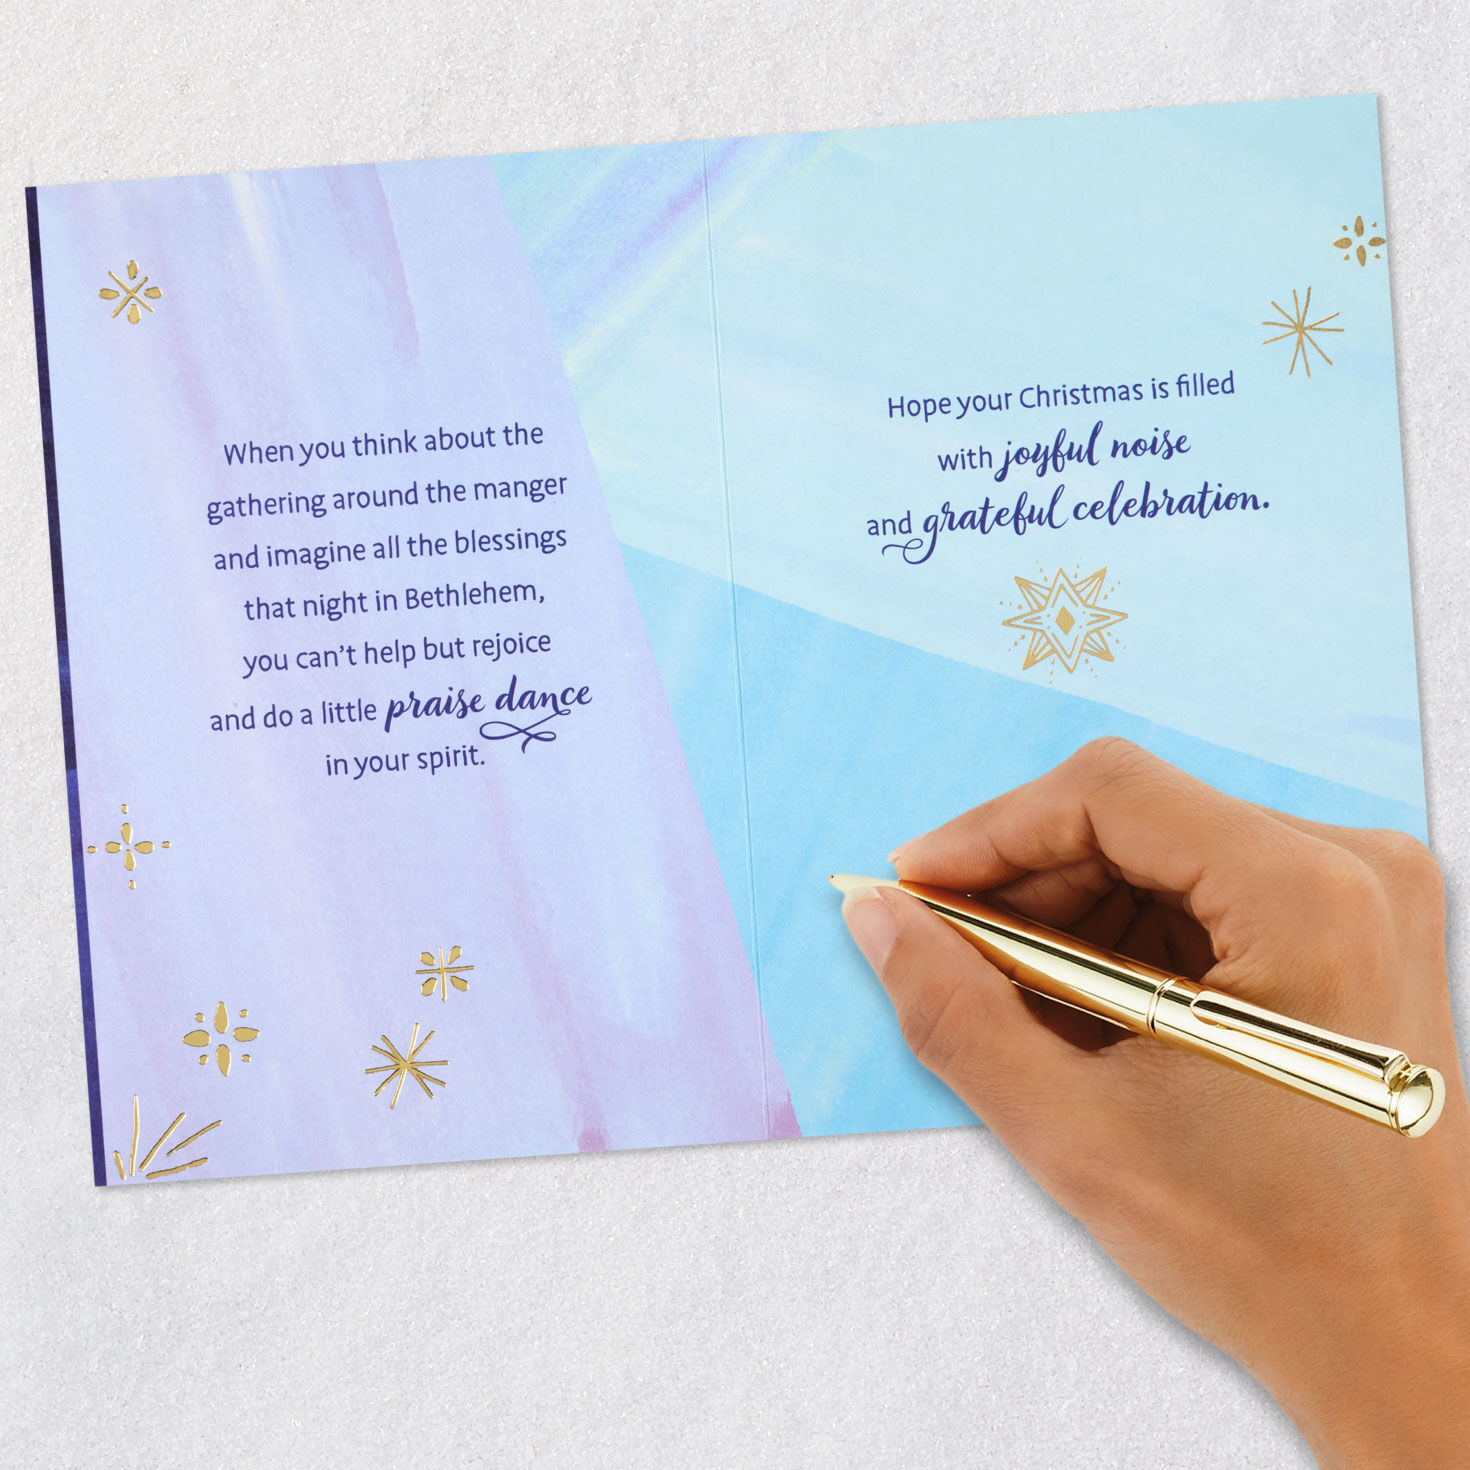 When you think about the
gathering around the manger
and imagine all the blessings
that night in Bethlehem,
you can't help but rejoice
and do a little praise dance
in your spirit.
Hope your Christmas is filled
with joyful noise
and grateful celebration.